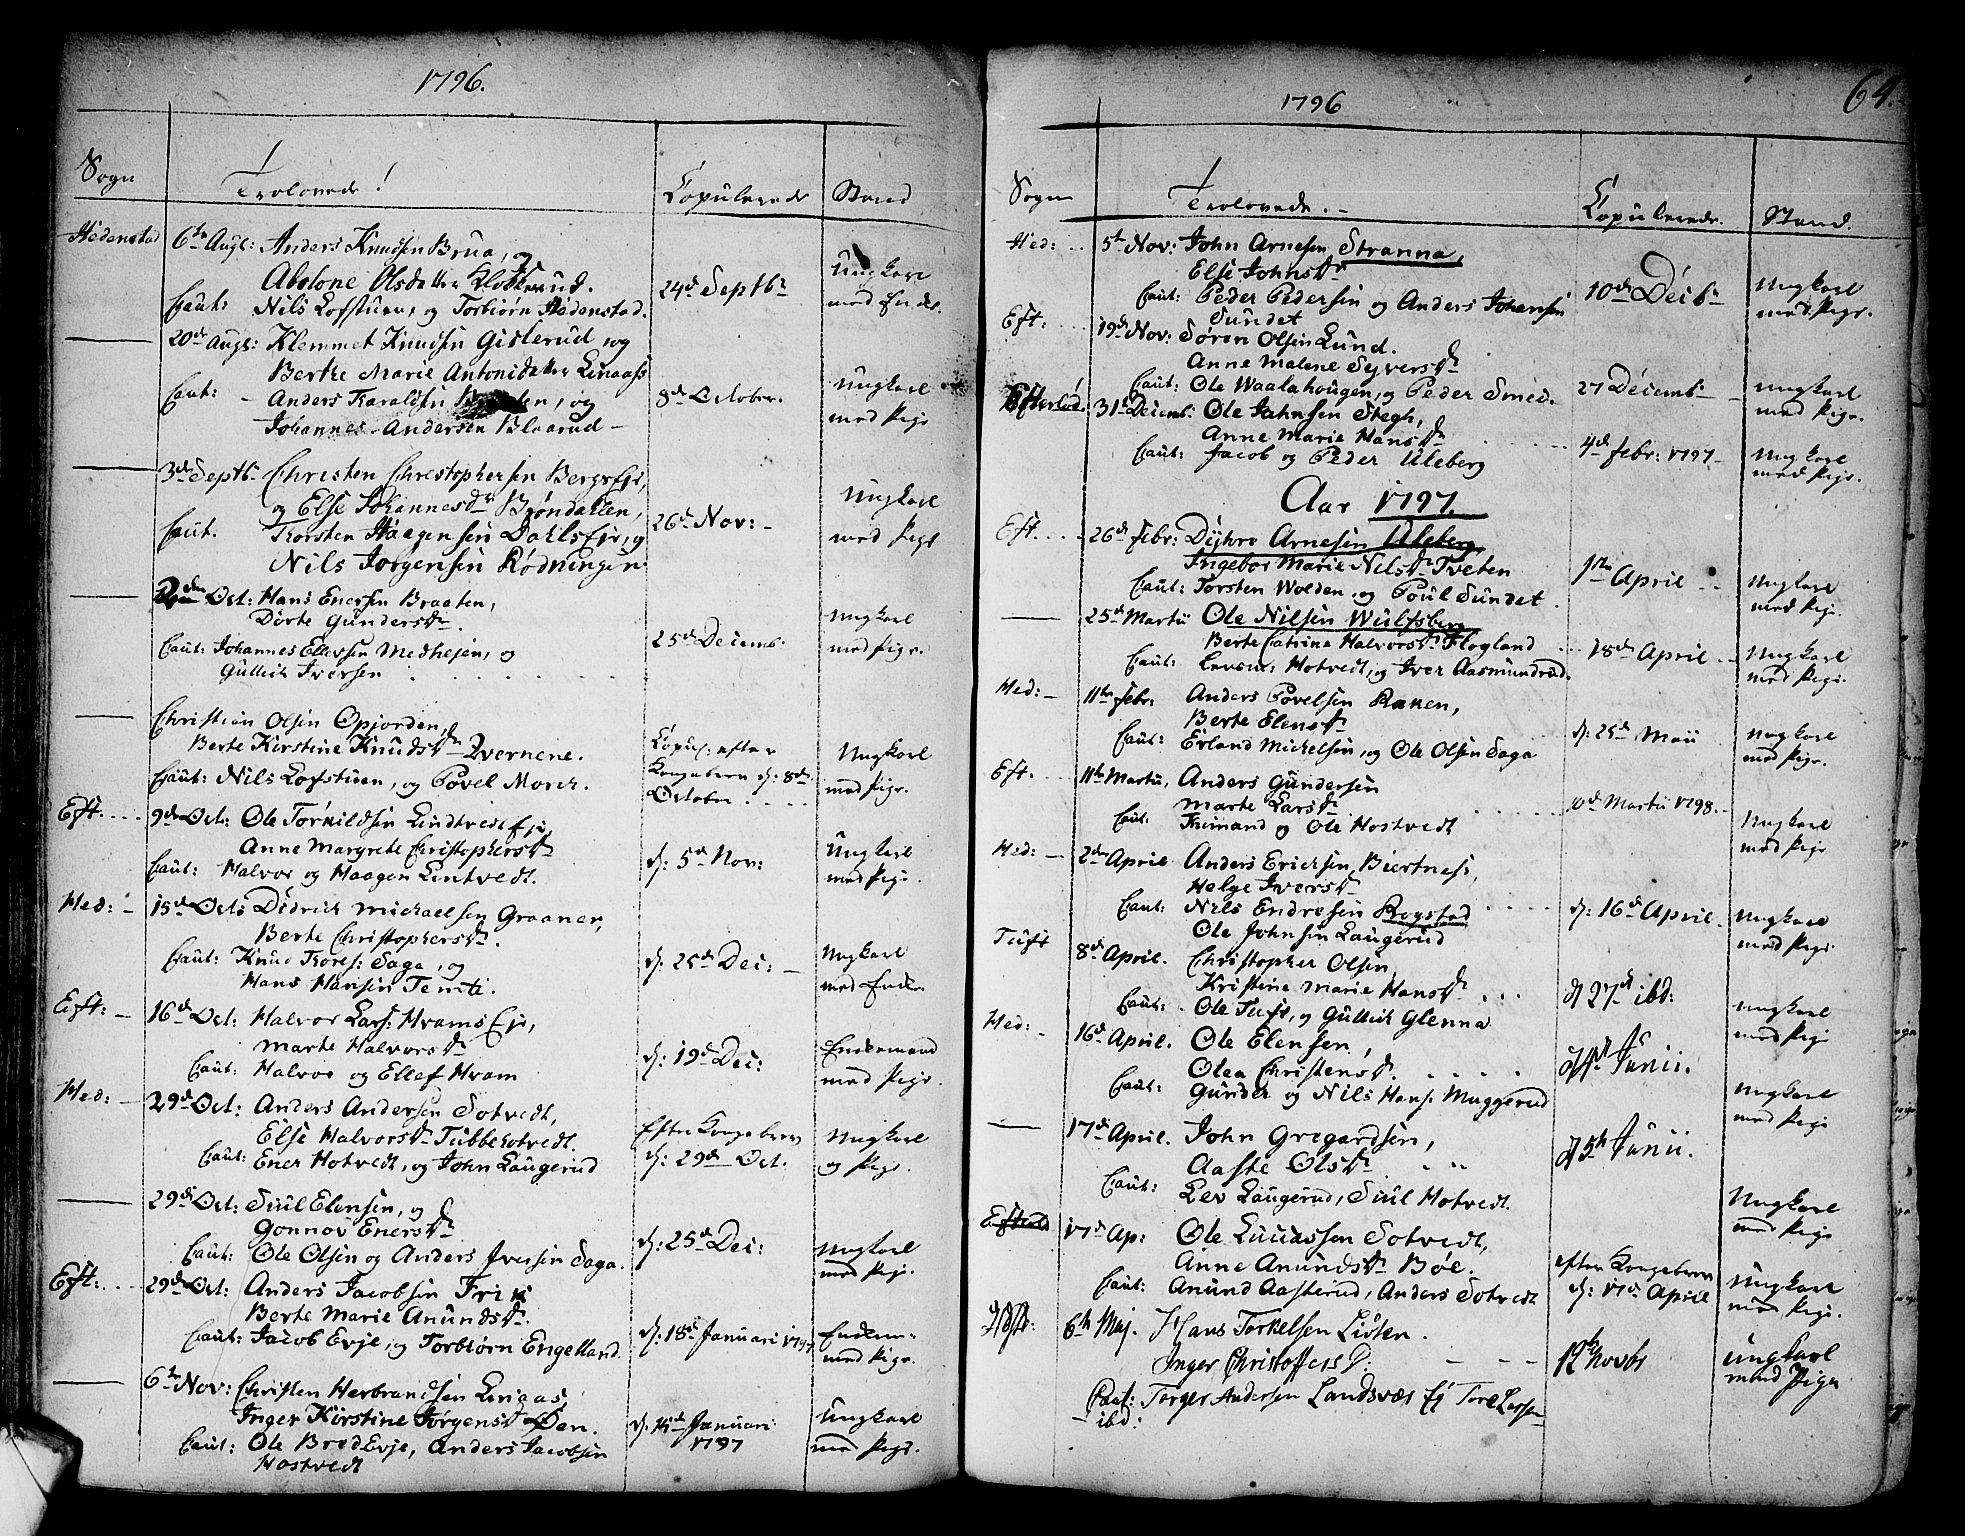 1796.
Sogn
Trolovede!
Copulerede
Stand
Hedenstad 6te Augt: Anders Knudsen Brua, og
Abolone Olsdatter Klokkerud.
Caut: Nils Lofstuen, og Torbiørn Hedenstad.
24de Septbr
Ungkarl
med Enke.
20de Augt: Klemmet Knudsen Gislerud, og
Berthe Marie Antonidatter Linaass
Caut: Anders Haraldsen, og
Johannes Andersen Blaarud
8de October.
Ungkarl
med Pige
3de Septb Christen Christophersen BergsEje,
og Else Johannesdr Brøndalen,
Caut. Torsten Haagensen DahlsEje, og
Nils Jørgensen Rødningen
26de Nov:
Ungkarl
med Pige
Oct: Hans Enersen Braaten,
Dorte Gundersdr.
Caut: Johannes Ellevsen Medhejen, og
Gullich Iversen
25de Decemb:
Ungkarl
med Pige.
Christian Olsen Opjorden,
Berte Kirstine Knudsdr Qvernene.
Caut: Nils Lofstuen, og Povel Morer.
Copul: efter
Kongebrev d: 8de
October
Ungkarl
med Pige.
Eft: 9de Oct: Ole Torkildsen Lindtvedt Eje,
Anne Margrete Christophersdr
Caut: Halvor og Haagen Lintvedt.
d: 5te Nov:
Ungkarl
med Pige.
Hed: 15de Octb Didrich Michaelsen Graaner,
Berte Christophersdr.
Caut: Knud Tores: Saga, og
Hans Hansen Temte.
d: 25de Dec:
Ungkarl
med Enke.
Eft: 16de Oct: Halvor Lars: HvamsEje,
Marte Halvorsdr
Caut: Halvor og Ellef Hvam
d: 19de Dec:
Enkemand
med Pige.
Hed: 29de Oct: Anders Andersen Sotvedt,
Else Halvorsdr Tubbehotvedt.
Caut: Ener Hotvedt, og John Laugerud
Efter Kongebrev
d: 29de Oct.
Ungkarl
og Pige.
29de Oct: Siul Elensen, og
Gonnov Enersdr
Caut: Ole Olsen og Anders Iversen Saga.
d: 25de Dec:
Ungkarl
med Pige.
Eft: 29de Oct: Anders Jacobsen Friis
Berte Marie Anundsdr.
Caut: Jacob Evje, og Torbiørn Engelland.
d: 18de Januari 1797
Enkem:
med Pige.
6te Nov: Christen Herbrandsen Linaas,
Inger Kirstine Jørgensdr Øen.
Caut: Ole BredEvje, Anders Jacobsen
Hostvedt
d: 14de Januari
1797
Ungkarl
med Pige.
1796
64.
Sogn
Trolovede.
Copulerede.
Stand.
Hed: 5te Nov: John Arnesen Stranna,
Else Johnsdr
Caut: Peder Pedersen og Anders Johansen
Sundet
10de Decbr
Ungkarl
med Pige.
Eft: 19de Nov: Søren Olsen Lund.
Anne Malene Syversdr
Caut: Ole Waalahougen, og Peder Smed.
27 Decemb
Ungkarl
med Pige.
Efterløt. 31te Decemb: Ole Jahnsen Stegh,
Anne Marie Hansdr
Caut: Jacob og Peder Uleberg
4de Febr: 1797
Ungkarl
med Pige
Aar 1797.
Eft. 26de Febr: Dyhre Arnesen Uleberg,
Ingebor Marie Nilsdr Tveten
Caut: Torsten Wolden, og Poul Sundet.
1te April
Ungkarl
med Pige.
25de Martii Ole Nilsen Wulfsberg
Berte Catrina Halvorsdr Flogland
Caut: Hotvedt, og Iver Aasmundrud.
18de April
Ungkarl
med Pige.
Hed: 11te Febr: Anders Povelsen Ranen,
Berte Elensdr
Caut: Erland Mickelsen, og Ole Olsen Saga
d: 25de Maii
Ungkarl
med Pige.
Eft: 11te Martii, Anders Gundersen
Marte Larsdr
Caut: Trimand og Ole Hostvedt
Martii 1798.
Ungkarl
med Pige
Hed: 2den April Anders Ericksen Biertness,
Helge Iversdr
Caut: Nils Endresen Rogstad
Ole Johnsen Laugerud
d: 16de April.
Ungkarl
med Pige
Tuft 8de April. Christopher Olsen,
Kristine Marie Hansdr
Caut: Ole Tuft, og Gullich Glenna
d 27de ibd:
Ungkarl
med Pige
Hed: 16de April. Ole Elensen,
Olea Christensdr.
Caut: Gunder og Nils Hans: Muggerud
Junii.
Ungkarl
med Pige
17de April. John Gregardsen,
Aaste Olsdr
Caut: Lev Laugerud, Siul Hotvedt.
d 5te Junii.
Ungkarl
med Pige
17de Ap: Ole Luuassen Sotvedt,
Anne Anundsdr Bøe.
Caut: Anund Aasterud, Anders Sotvedt
efter Kongebrev
d: 17de April
Ungkarl
med Pige.
6te Maj. Hans Torkelsen Listen.
Inger Christoffersd.
Caut: Torger Andersen Landsvær Ej Tore Larsen
ibd:
12te Novbr
ungkarl
med Pige